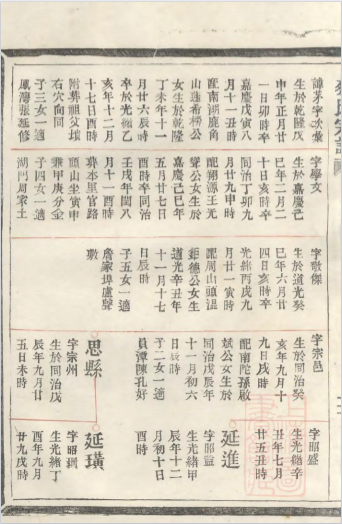 諱茅字次彙
生於乾隆戊
申年正月廿
一日卯時卒
嘉慶戊寅八
月十一丑時
配南湖鹿角
山逸希楊公
女生於乾隆
丁未年十一
月廿六辰時
卒於光緒乙
亥年十二月
十七日酉時
附葬祖父墳
右穴向同
子三女一適
風灣張延修
字學文
生於嘉慶己
巳年二月二
十日亥時卒
同治丁卯九
月廿九申時
配翔源王光
聲公女生於
嘉慶己巳年
五月廿七日
酉時卒同治
壬戌年閏八
月十一酉時
葬本里官路
頭山坐寅申
兼甲庚分金
子四女一適
湖門周家土
字敬傑
生於道光癸
巳年六月廿
四日亥時卒
光緒丙戌九
月廿一寅時
配周山頭溫
鉅德公女生於
道光辛丑年
十一月十七
日辰時
子五女一適
詹家埠盧聲
字宗邑
生於同治癸
亥年九月十
九日戌時
配南陀孫啟
斌公女生於
同治戊辰年
十一月初六
日辰時
子二女一適
員潭陳孔好
思縣
字宗州
生於同治戊
辰年九月廿
五日未時
字昭盛
生光緒辛
丑年七月
廿五丑時
延進
字昭益
生光緒甲
辰年十二
月初十日
酉時
延璜
字昭
生光緒丁
酉年九月
廿九戌時